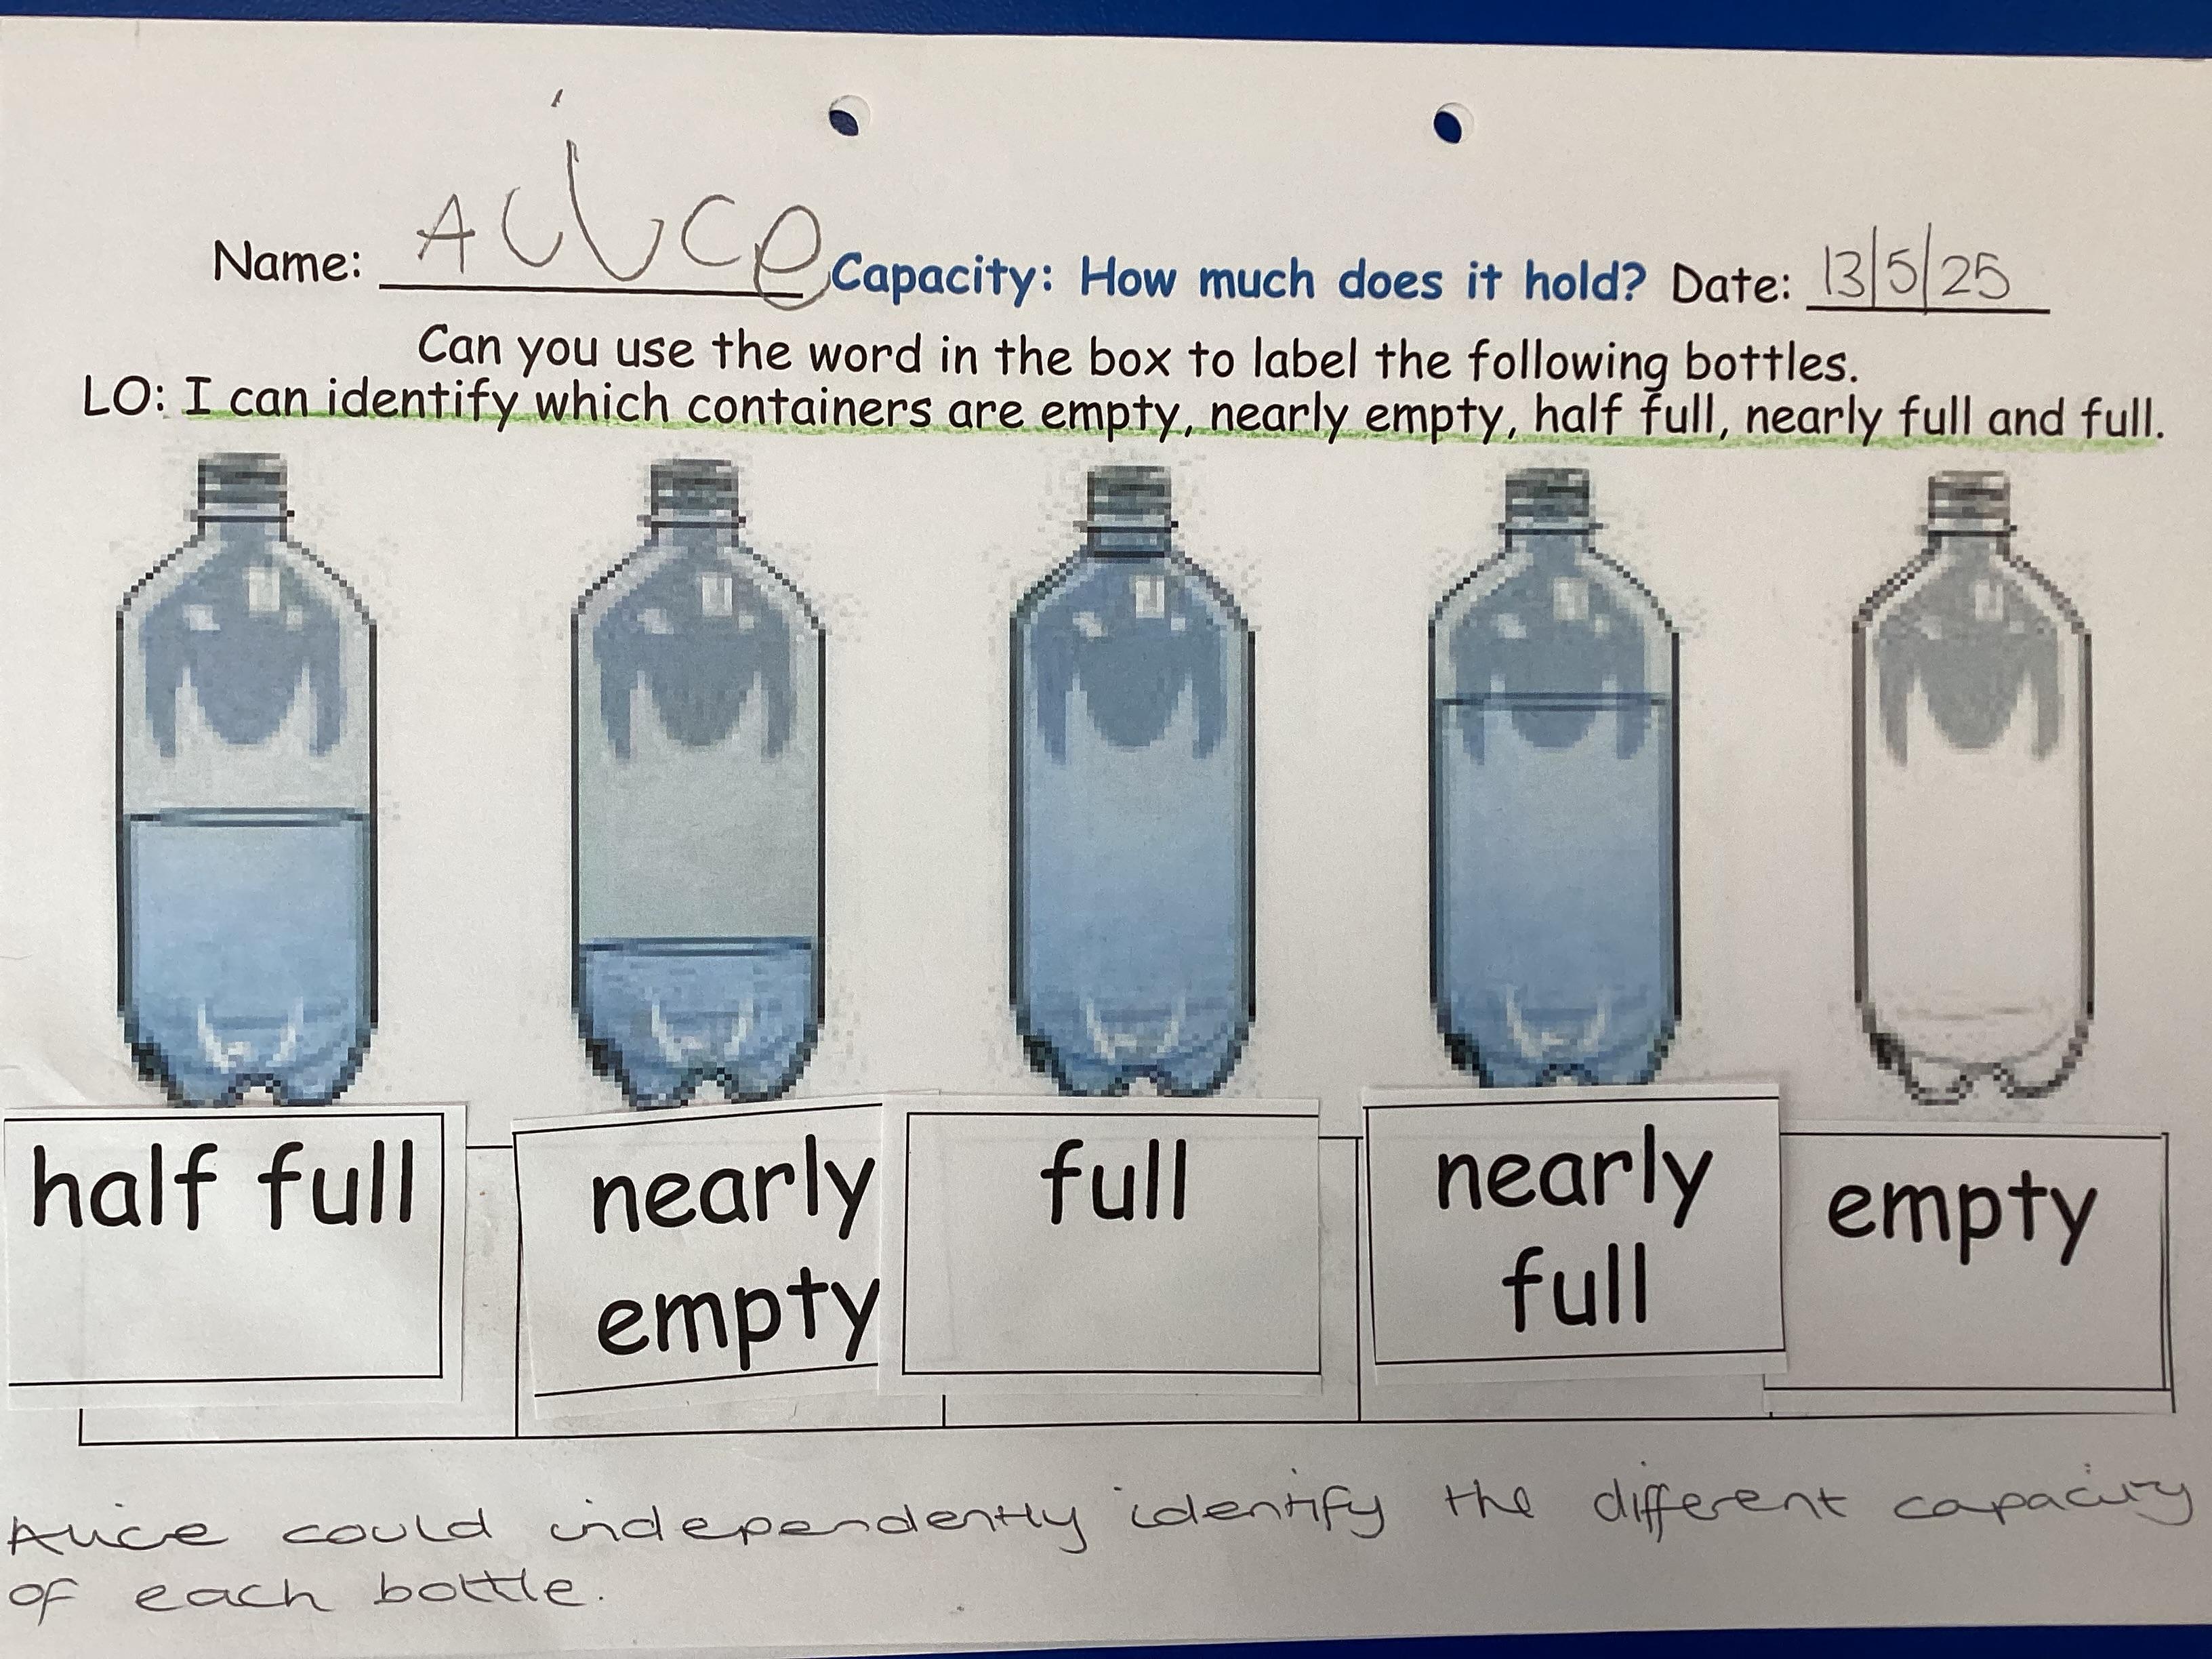 Name: Alice Capacity: How much does it hold? Date: 13/5/25
Can you use the word in the box to label the following bottles.
LO: I can identify which containers are empty, nearly empty, half full, nearly full and full.
half full
nearly
empty
full
nearly
full
empty
Alice could independently identify the different capacity
of each bottle.